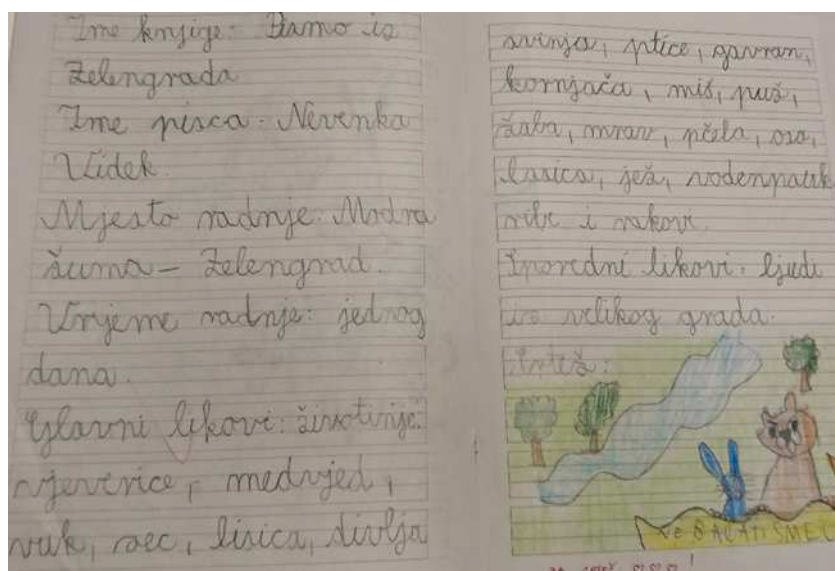 Ime knjige: Pismo iz
Zelengrada
Ime pisca: Nevenka
Videk.
Mjesto radnje: Modra
šuma - Zelengrad.
Vrijeme radnje: jednog
dana.
Glavni likovi: životinje:
vjeverice, medvjed,
vuk, zec, lisica, divlja
svinja, ptice, gavran,
kornjača, miš, puž,
žaba, mrav, pčela, osa,
lasica, jež, vodenpauk
ribe i rakovi.
Sporedni likovi: ljudi
iz velikog grada.
Crtež:
NE BACATI SMEĆ